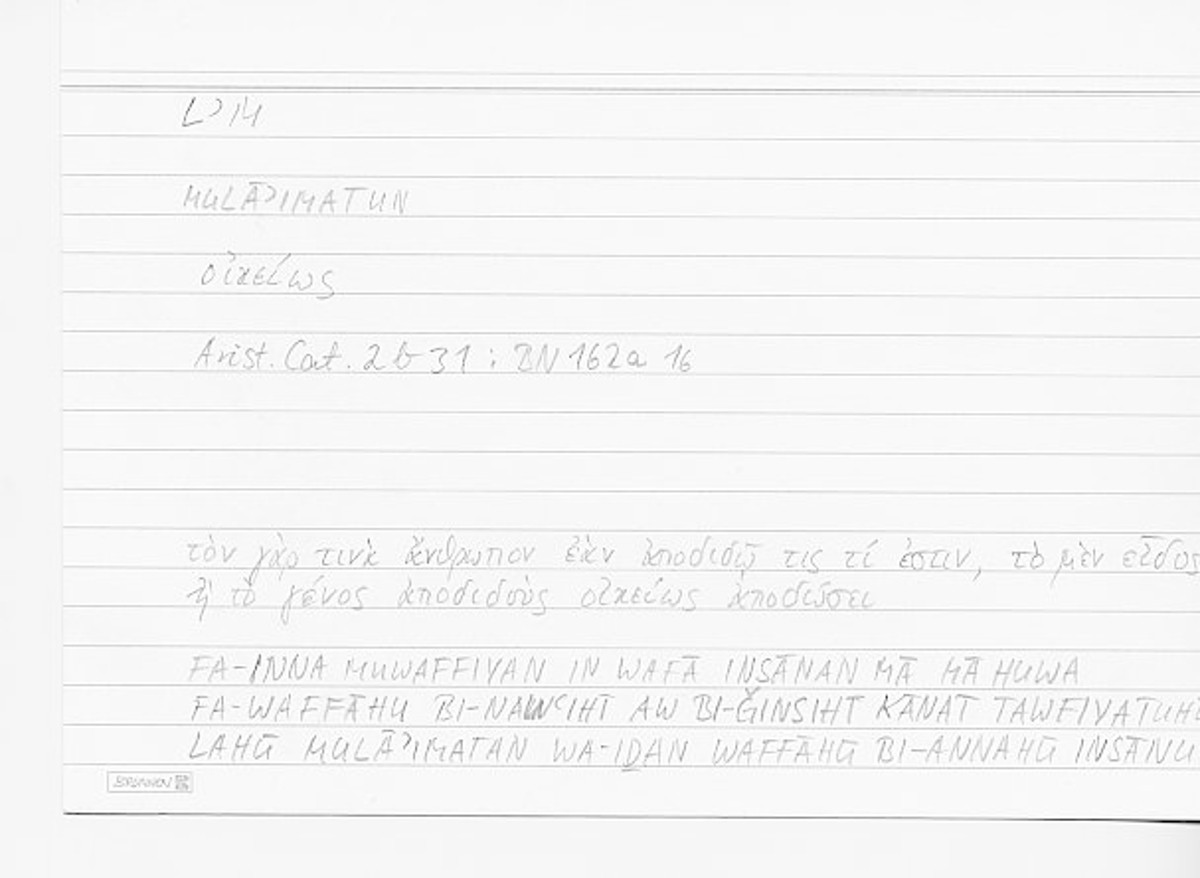 LʾM
MULĀʾIMATUN
οἰκείως
Arist. Cat. 2 b 31 ; BN 162a 16
τὸν γὰρ τινὰ ἄνθρωπον ἐὰν ἀποδιδῷ τις τί ἐστιν, τὸ μὲν εἶδος
ἢ τὸ γένος ἀποδιδοὺς οἰκείως ἀποδώσει
FA-INNA MUWAFFIYAN IN WAFĀ INSĀNAN MĀ MĀ HUWA
FA-WAFFĀHU BI-NAWʿIHĪ AW BI-ǦINSIHĪ KĀNAT TAWFIYATUH
LAHŪ MULĀʾIMATAN WA-IḎAN WAFFĀHŪ BI-ANNAHŪ INSĀNU
BRUNNEN